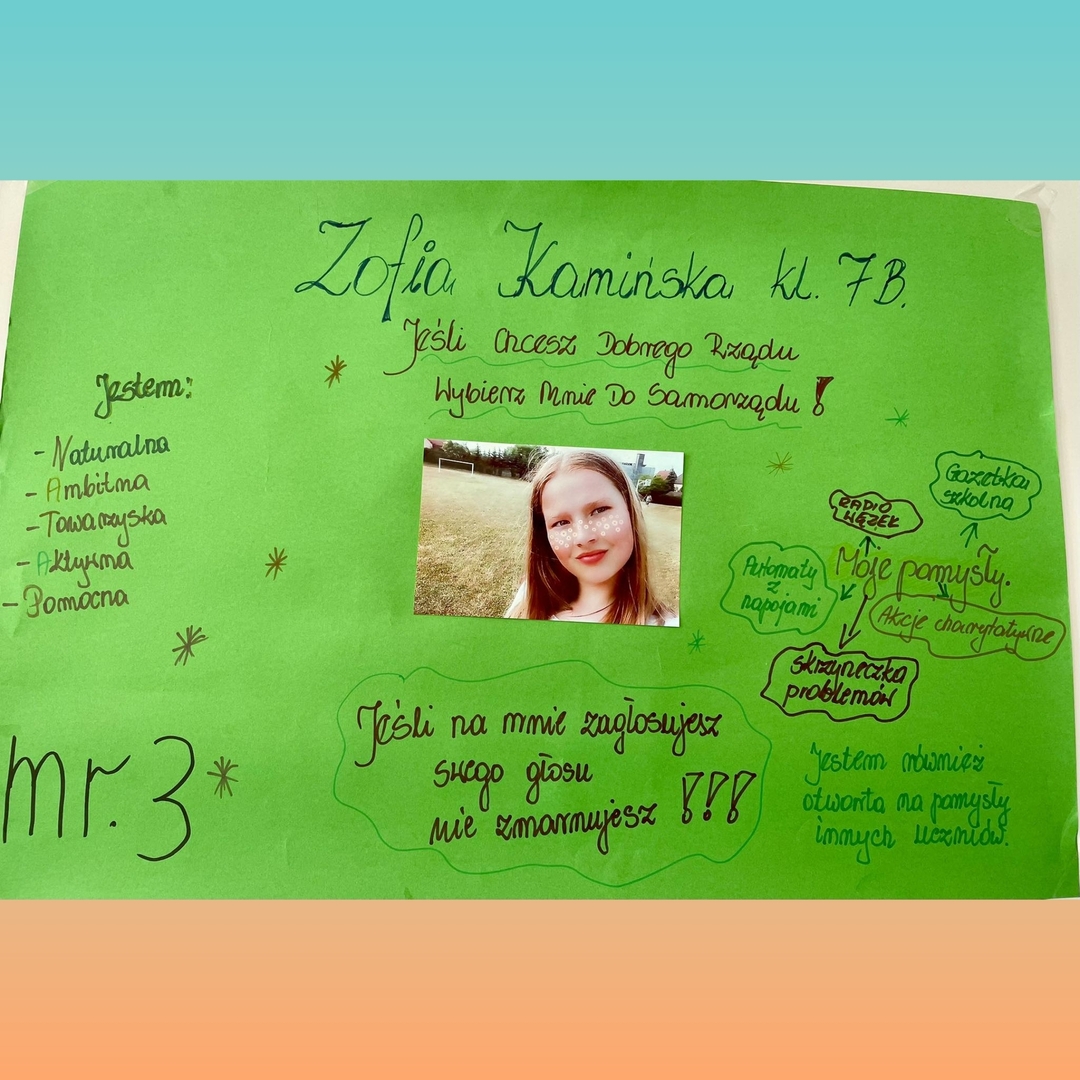 Zofia Kamińska kl. 7B.
Jeśli Chcesz Dobrego Rządu
Wybierz Mnie Do Samorządu!
Jestem:
- Naturalna
- Ambitna
- Towarzyska
- Aktywna
- Pomocna
nr. 3
Moje pomysły.
RADIO
WĘZEŁ
Gazetka
szkolna
Automaty
z
napojami
Akcje charytatywne
skrzyneczka
problemów
Jeśli na mnie zagłosujesz
swego głosu
nie zmarnujesz !!!
Jestem również
otwarta na pomysły
innych uczniów.